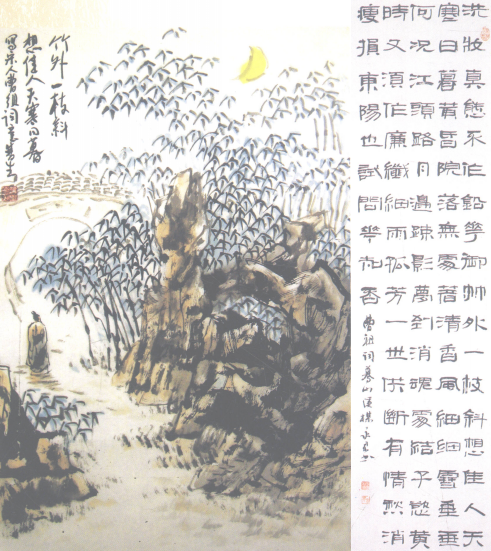 洗妝真態不作鉛華御竹外一枝斜想佳人天
寒日暮黄昏院落無處著清香風細細雪垂垂
何況江頭路月邊疎影夢到消魂處結子欲黄
時又須作廉纖細雨孤芳一世供斷有情愁消
瘦損東陽也試問華知否
曹組詞蓦山溪梅
竹外一枝斜
想佳人天寒日暮
寫宋人曹組詞意